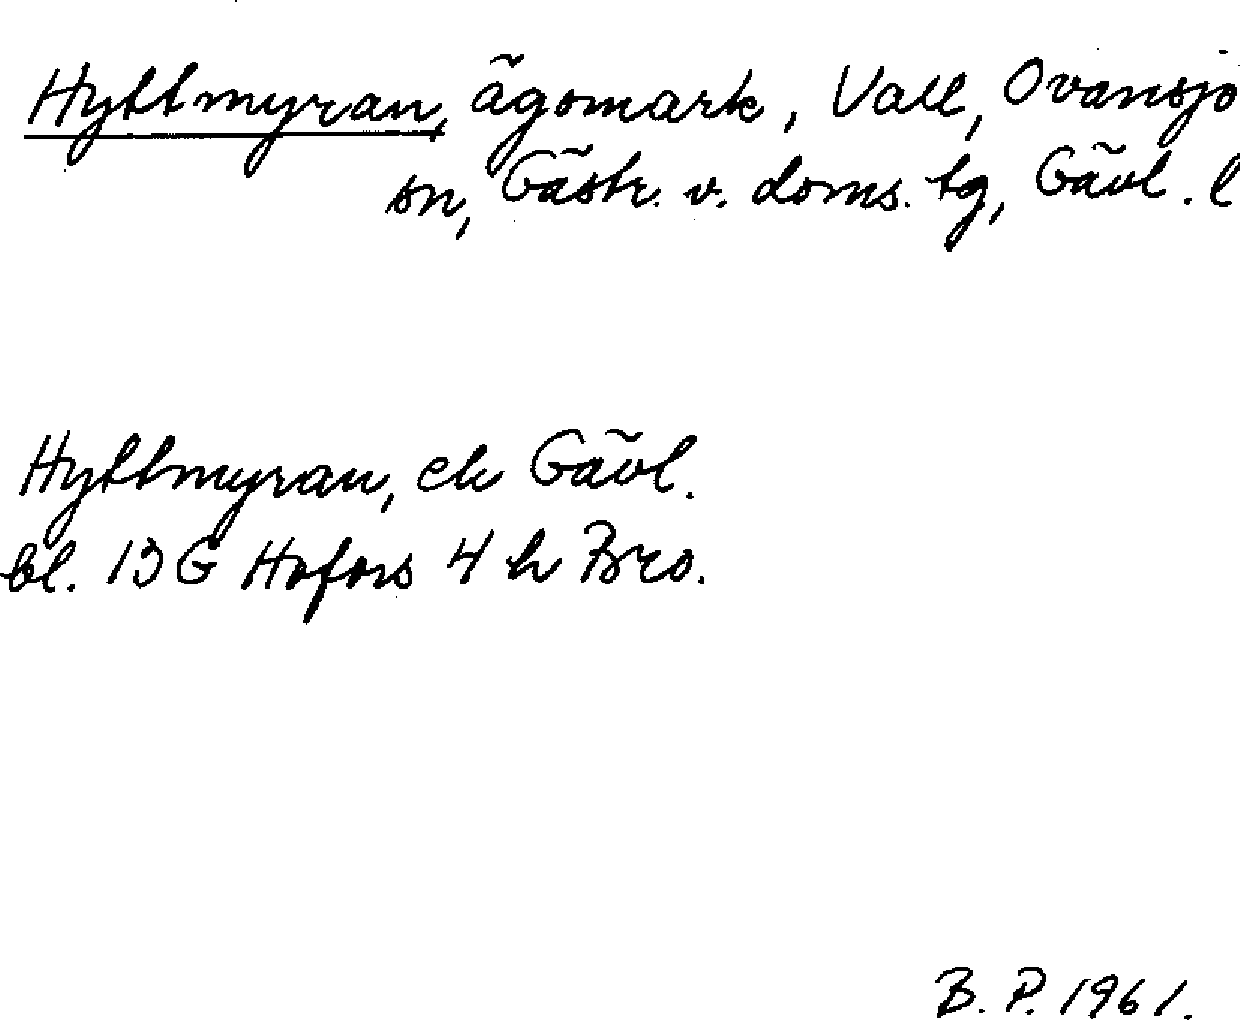 Hyttmyran, ägomark, Vall, Ovansjö
sn, Gästr. v. doms. tg, Gävl. l
Hyttmyran, ek Gävl.
bl. 13 G Hofors 4 h Bro.
B. P. 1961.